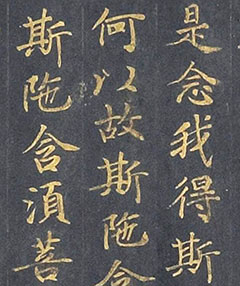 是念我得斯
何以故斯陁含
斯陁含湏菩